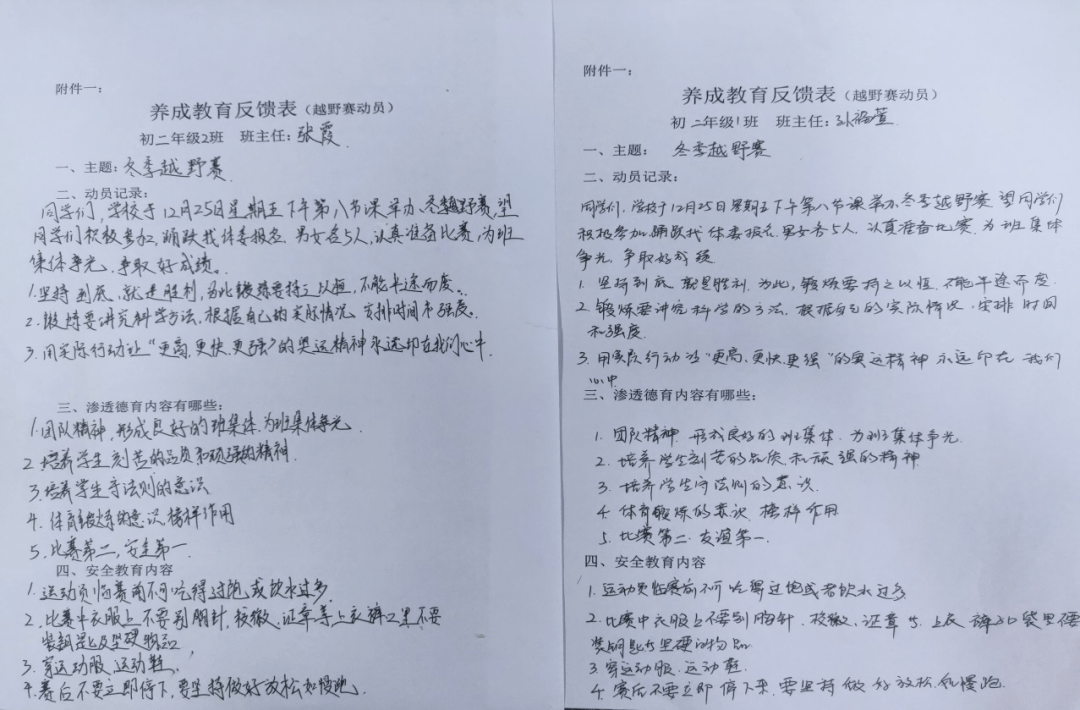 附件一：
养成教育反馈表（越野赛动员）
初二年级2班 班主任：张霞
一、主题：冬季越野赛
二、动员记录：
同学们，学校于12月25日星期五下午第八节课举办冬季越野赛，望
同学们积极参加，踊跃找体委报名，男女各5人，认真准备比赛，为班
集体争光，争取好成绩。
1.坚持到底，就是胜利，为此锻炼要持之以恒，不能半途而废。
2.锻炼要讲究科学方法，根据自己的实际情况安排时间和强度。
3.用实际行动让“更高、更快、更强”的奥运精神永远印在我们心中。
三、渗透德育内容有哪些：
1.团队精神，形成良好的班集体，为班集体争光
2.培养学生刻苦的品质和顽强的精神.
3.培养学生守法则的意识
4.体育锻炼的意识，榜样作用
5.比赛第二，安全第一.
四、安全教育内容
1.运动员临赛前不可吃得过饱或饮水过多.
2.比赛中衣服上不要别胸针，校徽，证章等上衣裤口里不要
装钥匙及坚硬物品
3.穿运动服、运动鞋.
4.赛后不要立即停下，要坚持做好放松和慢跑.
附件一：
养成教育反馈表（越野赛动员）
初二年级1班 班主任：
一、主题： 冬季越野赛
二、动员记录：
同学们，学校于12月25日星期五下午第八节课举办冬季越野赛 望同学们
积极参加，踊跃找体委报名，男女各5人，认真准备比赛，为班集体
争光，争取好成绩
1. 坚持到底，就是胜利，为此，锻炼要持之以恒，不能半途而废
2.锻炼要讲究科学的方法，根据自己的实际情况，安排时间
和强度.
3.用实际行动让“更高、更快更强“的奥运精神永远印在我们
心中
三、渗透德育内容有哪些：
1. 团队精神 形成良好的班集体，为班集体争光.
2. 培养学生刻苦的品质和顽强的精神
3. 培养学生守法则的意识.
4.体育锻炼的意识，榜样作用
5.比赛第二，友谊第一.
四、安全教育内容
1.运动员临赛前不可吃得过饱或者饮水过多
2.比赛中衣服上不要别胸针，校徽，证章等.上衣裤子口袋里
装钥匙与坚硬的物品.
3.穿运动服、运动鞋.
4.赛后不要立即停下来，要坚持做好放松和慢跑.